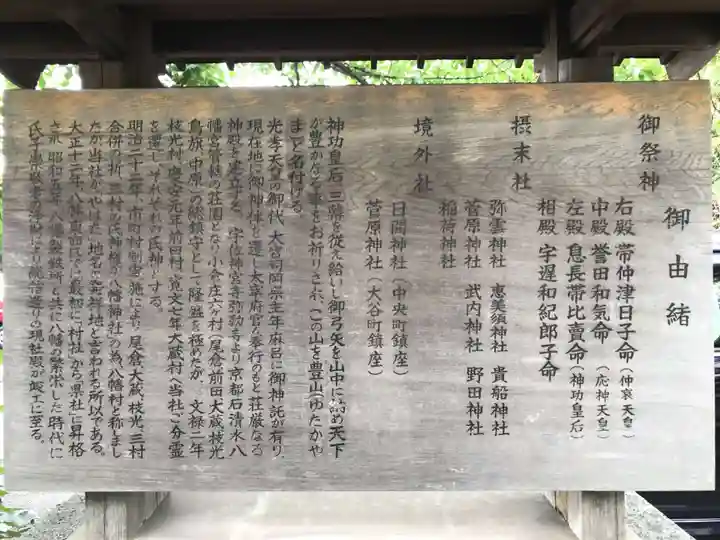 御由緒
御祭神
右殿 帯仲津日子命(仲哀天皇)
中殿 誉田和気命(応神天皇)
左殿 息長帯比賣命(神功皇后)
相殿 宇遅和紀郎子命
摂末社
弥雲神社 恵美須神社 貴船神社
菅原神社 武内神社 野田神社
稲荷神社
境外社
日岡神社(中央町鎮座)
菅原神社(大谷町鎮座)
神功皇后、三韓を従え給いし御弓矢を山中に納め天下
が豊かなる事をお祈りされ、この山を豊山(ゆたかや
ま)と名付ける。
光孝天皇の御代、大宮司岡宗主年麻呂に御神託が有り、
現在地に御神体を遷し太宰府官人奉行のもと荘厳なる
神殿を建立する。宇佐神宮寺弥勒寺より京都石清水八
幡宮管轄の荘園となり小倉庄六か村(尾倉前田大蔵枝光
鳥旗、中原)の總鎮守として隆盛を極めたが、文禄二年
枝光村、慶安元年前田村、寛文七年大蔵村へ当社ご分霊
を遷し、それぞれの氏神とする。
明治二十二年、市町村制実施により尾倉、大蔵、枝光、三村
合併の折、三村の氏神様が「八幡神社」の為、八幡村と称しまし
たが当社が「やはた」地名の発祥地と言われる所以である。
大正十二年、八幡東田氏子に最初に「村社」から「県社」に昇格
され、昭和五年、八幡製鉄所と共に八幡の繁栄した時代に
氏子崇敬者の浄財により総台造りの現社殿が竣工に至る。